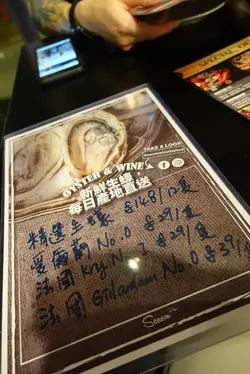 SPECIAL
TAKE A LOOK!
OYSTER & WINE
新鮮生蠔
每日產地直送
精選生蠔 $148/12隻
愛爾蘭 No. 0 $29/隻
法國 Krys No. 2 $29/隻
法國 Gillardeau No. 0 $39/隻
Season